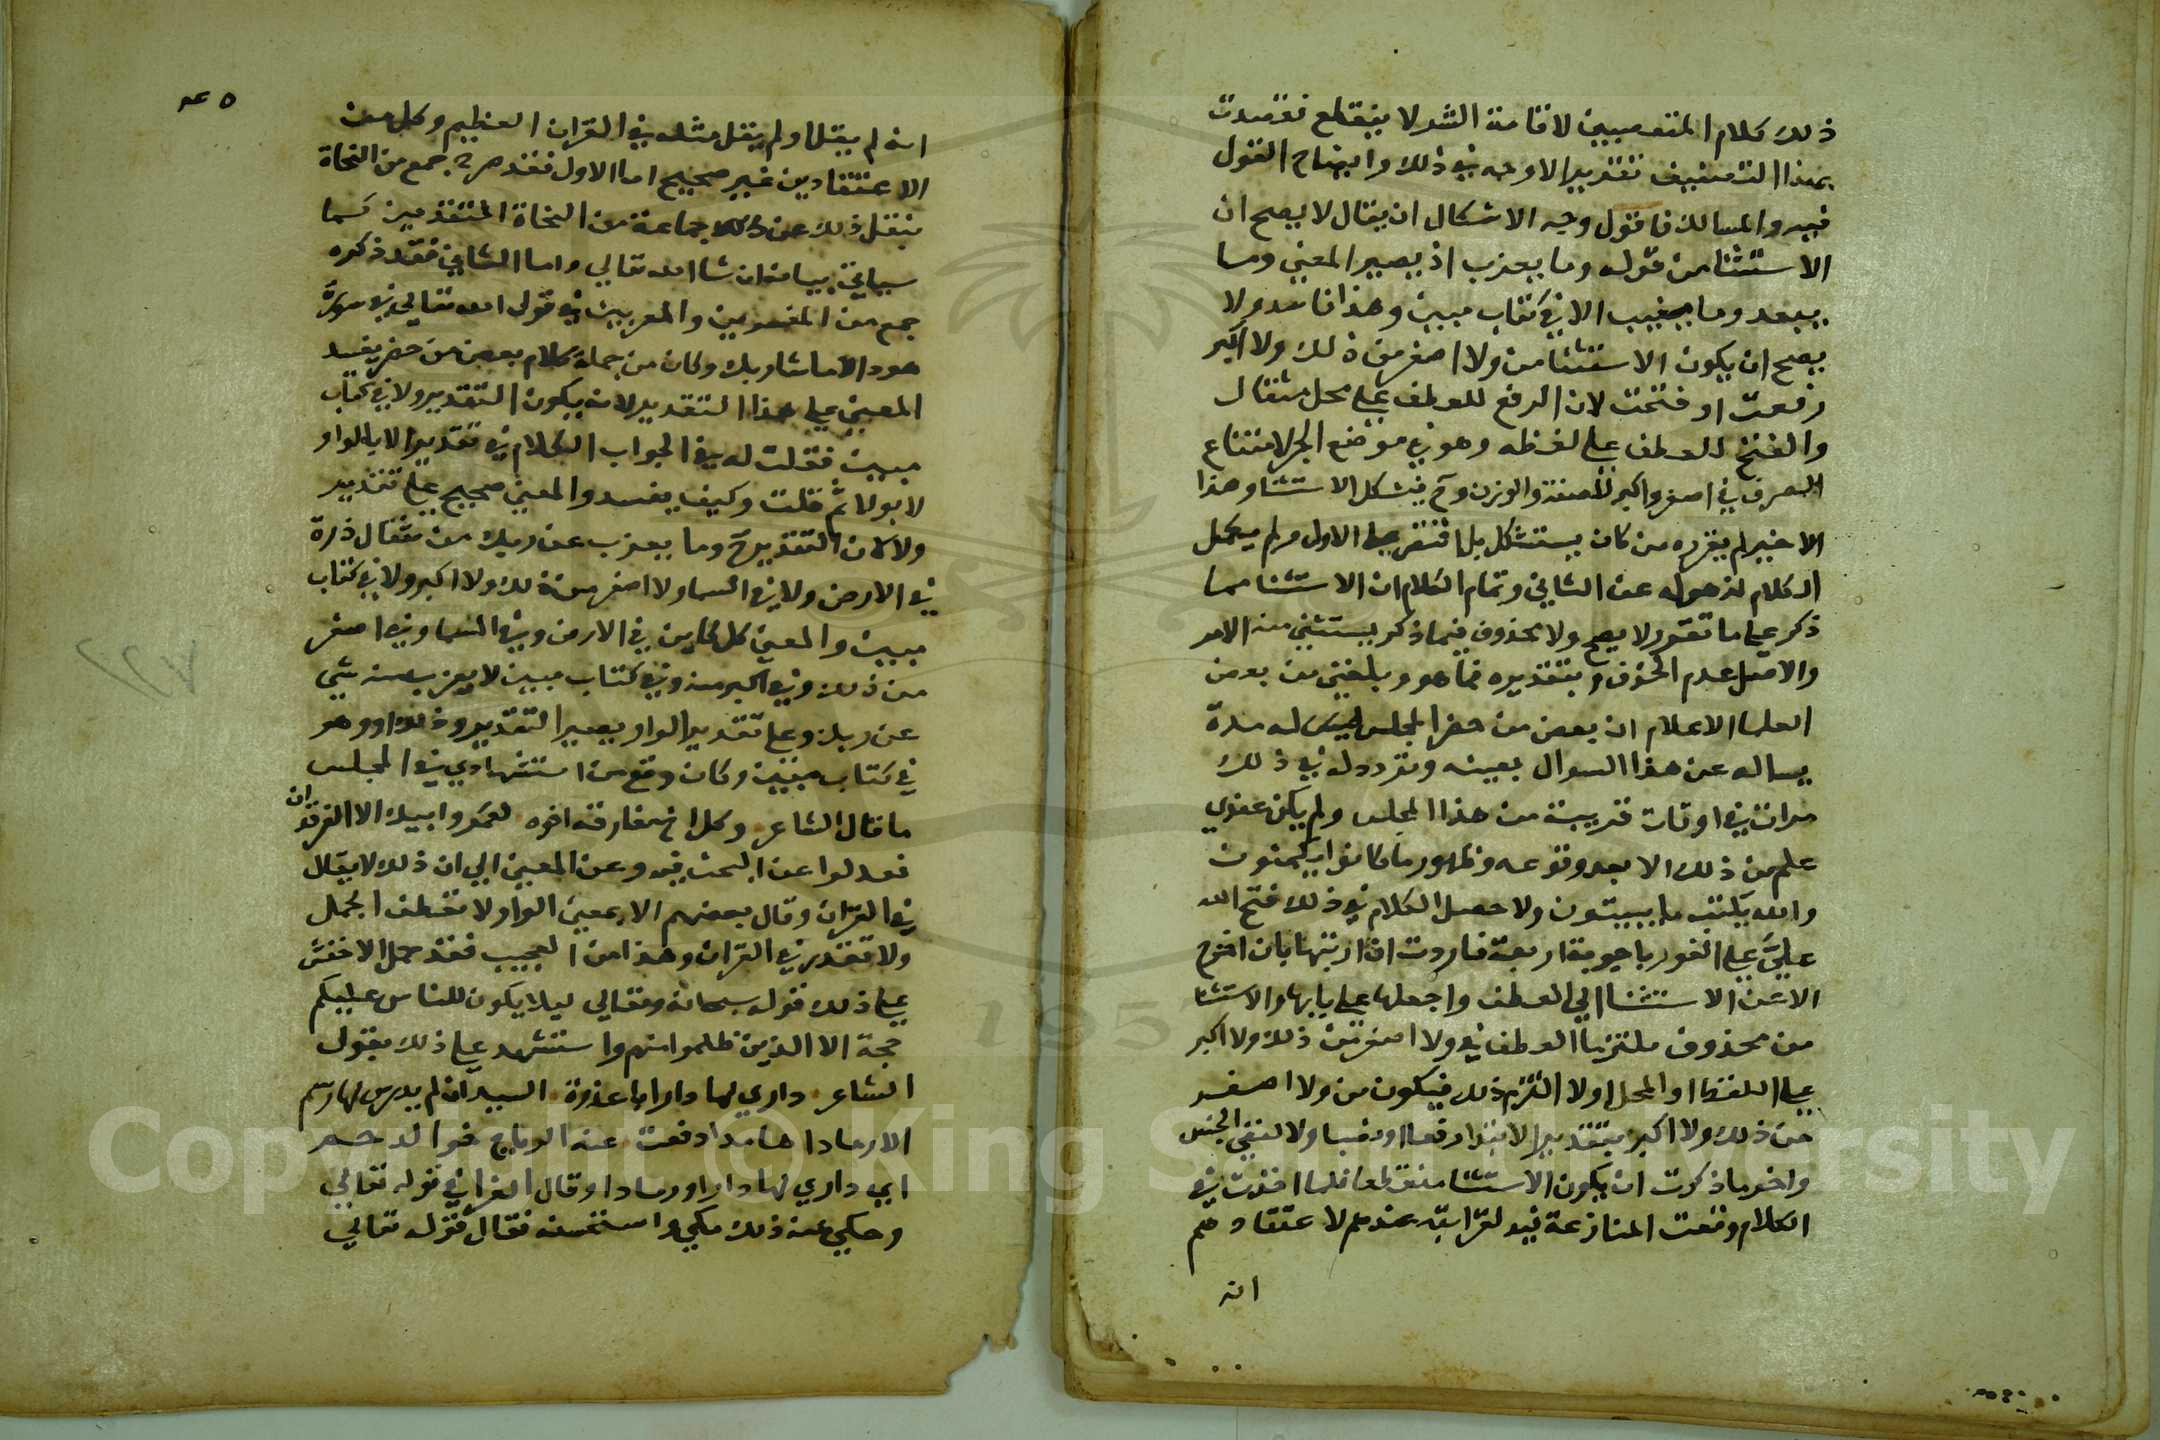 ذلك كلام المتعصبين لاقامة الشر لا ينقطع فقصدت
بهذا التصنيف تقدير الاوجه في ذلك وايضاح القول
فيه والمسالك فاقول وجه الاشكال ان يقال لا يصح ان
الاستثنا من قوله وما يعزب اذ يصير المعني وما
يبعد وما يغيب الا في كتاب مبين وهذا فاسد ولا
يصح ان يكون الاستثنا من ولا اصغر من ذلك ولا اكبر
رفعت او فتحت لان الرفع للعطف علي محل مثقال
والفتح للعطف علي لفظه وهو في موضع الجر لامتناع
الصرف في اصغر واكبر للصفة والوزن وح يشكل الاستثنا وهذا
الاخير لم يقرره من كان يستشكل بل اقتصر علي الاول ولم يكمل
الكلام لذهوله عن الثاني وتمام الكلام ان الاستثنا مما
ذكر علي ما تقرر لا يصح ولا محذوف فيما ذكر يستثني منه الامر
والاصل عدم الحذف وبتقديره فما هو وبلغني من بعض
العلما الاعلام ان بعض من حضر المجلس له مدة
يساله عن هذا السوال بعينه وتردد له في ذلك
مرات في اوقات قريبة من هذا المجلس ولم يكن عندي
علم من ذلك الا بعد وقوعه وظهور ما كانوا يكتمون
والله يكتب ما يبيتون ولا حصل الكلام في ذلك فتح الله
علي علي الفور باجوبة اربعة فاردت ان ارتبها بان اخرج
الا عن الاستثنا الي العطف واجعلها علي بابها والاستثنا
من محذوف ملتزما العطف في ولا اصغر من ذلك ولا اكبر
علي اللفظ او المحل اولا التزم ذلك فيكون من ولا اصغر
من ذلك ولا اكبر بتقدير الابتدا رفعا او نصبا ولا لنفي الجنس
واخر ما ذكرت ان يكون الاستثنا منقطعا فلما اخذت في
الكلام وقعت المنازعة فيه لغرابته عندهم لاعتقادهم
انه
٤٥
انه لم يقل او لم ينقل مثله في القران العظيم وكل من
الاعتقادين غير صحيح اما الاول فقد صرح جمع من النحاة
بنقل ذلك عن جماعة من النحاة المتقدمين كما
سياتي بيانه ان شا الله تعالي واما الثاني فقد ذكره
جمع من المفسرين والمعربين في قول الله تعالي في سورة
هود الا ما شا ربك وكان من جملة كلام بعض من حضر يفسد
المعني علي هذا التقدير لانه يكون التقدير ولا في كتاب
مبين فقلت له في الجواب الكلام في تقدير الا بالواو
لا بولا ثم قلت وكيف يفسد والمعني صحيح علي تقدير
ولا لان التقدير ح وما يعزب عن ربك من مثقال ذرة
في الارض ولا في السما ولا اصغر من ذلك ولا اكبر ولا في كتاب
مبين والمعني كل كاين في الارض وفي السما وفي اصغر
من ذلك وفي اكبر منه وفي كتاب مبين لا يعزب منه شي
عن ربك وعلي تقدير الواو يصير التقدير وهو
في كتاب مبين وكان وقع من استشهادي في المجلس
ما قال الشاعر وكل اخ مفارقه اخوه لعمر ابيك الا الفرقدان
فعدلوا عن البحث فيه وعن المعني الي ان ذلك لا يقال
في القران وقال بعضهم الا بمعني الواو لا تعطف الجمل
ولا تقدر في القران وهذا من العجيب فقد حمل الاخفش
علي ذلك قوله سبحانه وتعالي ليلا يكون للناس عليكم
حجة الا الذين ظلموا منهم واستشهد علي ذلك بقول
الشاعر واري لها دارا باغدرة السيدان لم يدرس لها رسم
الا رمادا هامدا دفعت عنه الرياح خوالد سحم
اي واري لها دارا ورمادا وقال الفرا في قوله تعالي
وحكي عنه ذلك مكي واستحسنه فقال قوله تعالي